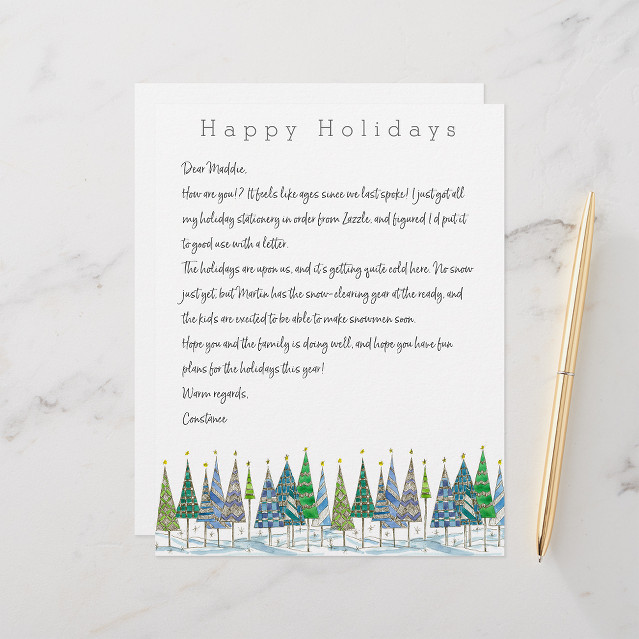 Happy Holidays
Dear Maddie,
How are you!? It feels like ages since we last spoke! I just got all
my holiday stationery in order from Zazzle, and figured I'd put it
to good use with a letter.
The holidays are upon us, and it's getting quite cold here. No snow
just yet, but Martin has the snow-clearing gear at the ready, and
the kids are excited to be able to make snowmen soon.
Hope you and the family is doing well, and hope you have fun
plans for the holidays this year!
Warm regards,
Constance